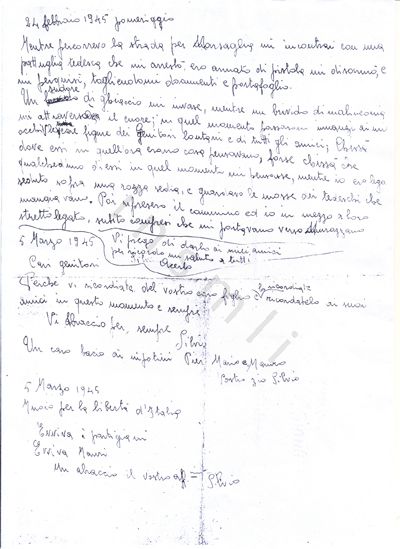 24 febbraio 1945 pomeriggio
Mentre percorrevo la strada per Marsaglia mi incontrai con una
pattuglia tedesca che mi arrestò, ero armato di pistola mi disarmò, e
mi perquisì, togliendomi documenti e portafoglio.
Un sudore di ghiaccio mi invase, mentre un brivido di malinconia
mi attraversava il cuore; in quel momento passavan innanzi ai miei
occhi le care figure dei Genitori lontani e di tutti gli amici; Chissà
dove essi in quell'ora erano cosa pensavano, forse chissà che
qualcheduno d'essi in quel momento mi pensasse, mentre io ero
seduto sopra una rozza sedia, e guardavo le mosse dei tedeschi che
mangiavano. Poi ripresero il cammino ed io in mezzo a loro
stretto legato, subito compresi che mi portavano verso Murazzano
5 Marzo 1945 Vi prego di darlo ai miei amici
per ricordo un saluto a tutti
Cari genitori
Perchè vi ricordiate del vostro caro figlio e
mandatelo ai suoi
amici in questo momento e sempre
Vi abbraccio per sempre
Silvio
Un caro bacio ai nipotini Pier Mario e Mauro
vostro zio Silvio
5 Marzo 1945
Muoio per la libertà d'Italia
Evviva i partigiani
Evviva Mauri
Un abbraccio il vostro aff = Silvio